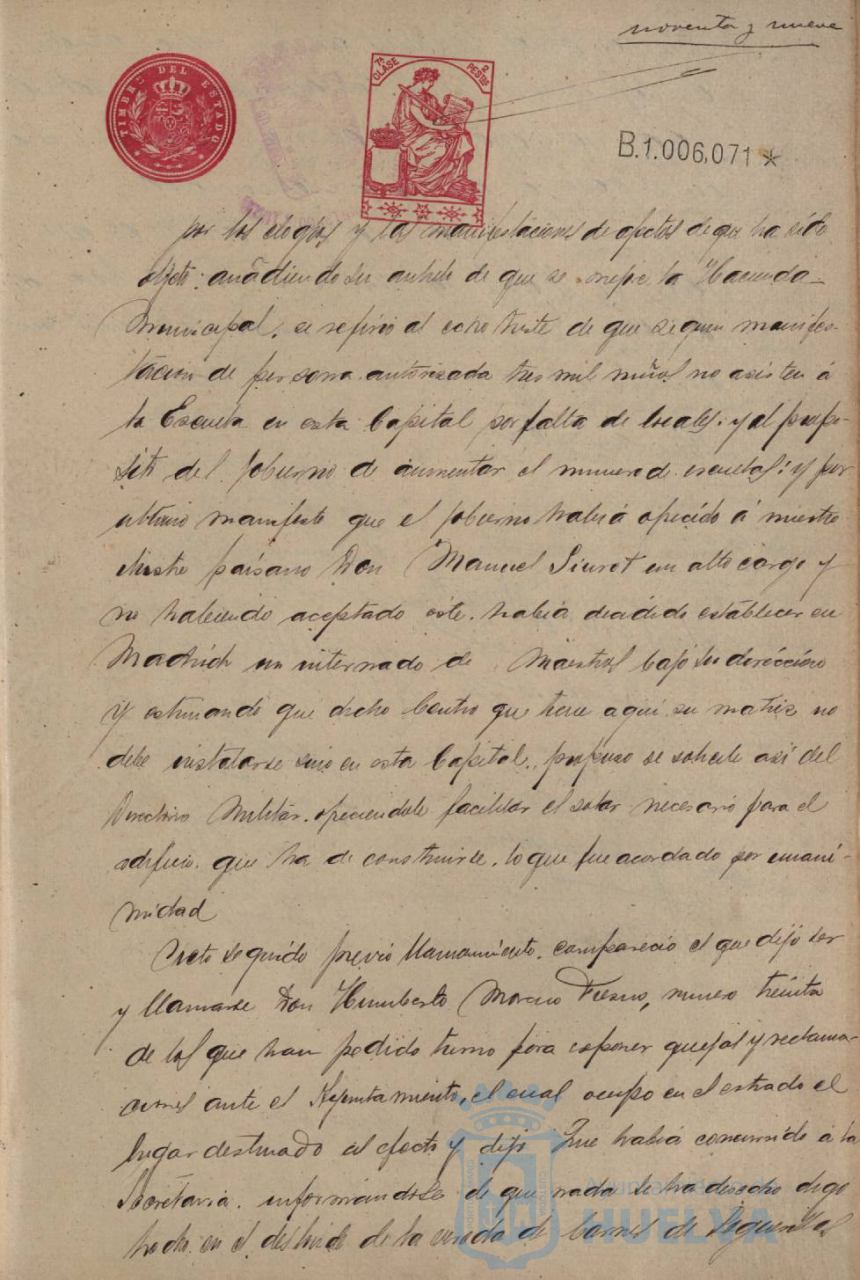 noventa y nueve
TIMBRE DEL ESTADO
7ª CLASE 2 PESETAS
B.1.006,071 *
por los elogios y las manifestaciones de afectos de que ha sido
objeto: añadiendo su anhelo de que se mejore la Hacienda
Municipal, se refirió al echo triste de que segun manifes-
tacion de persona autorizada tres mil niños no asisten á
la Escuela en esta Capital por falta de locales; y al propo-
sito del Gobierno de aumentar el numero de escuelas; y por
ultimo manifestó que el Gobierno habia ofrecido á nuestro
ilustre paisano Don Manuel Siurot un alto cargo y
no habiendo aceptado este, habia decidido establecer en
Madrid un internado de Maestros bajo su dirección
y estimando que dicho Centro que tiene aqui su matriz no
debe instalarse sino en esta Capital, propuso se solicite asi del
Directorio Militar, ofreciendole facilitar el solar necesario para el
edificio que ha de construirse, lo que fue acordado por unani-
midad
Acto seguido previo llamamiento, compareció el que dijo ser
y llamarse Don Humberto Moreno, numero treinta
de los que han pedido turno para esponer quejas y reclama-
ciones ante el Ayuntamiento, el cual ocupó en el estrado el
lugar destinado al efecto y dijo: Que habia concurrido á la
Secretaria, informándose de que nada se ha derecho digo
hecho en el deslinde de la vereda de Carnes de
HUELVA